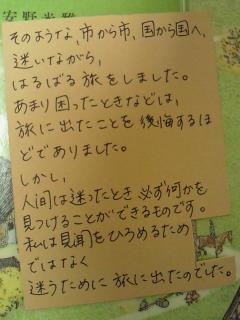 安野光雅
そのような、市から市、国から国へ、
迷いながら、
はるばる旅をしました。
あまり困ったときなどは、
旅に出たことを後悔するほ
どでありました。
しかし、
人間は迷ったとき必ず何かを
見つけることができるものです。
私は見聞をひろめるため
ではなく
迷うために旅に出たのでした。